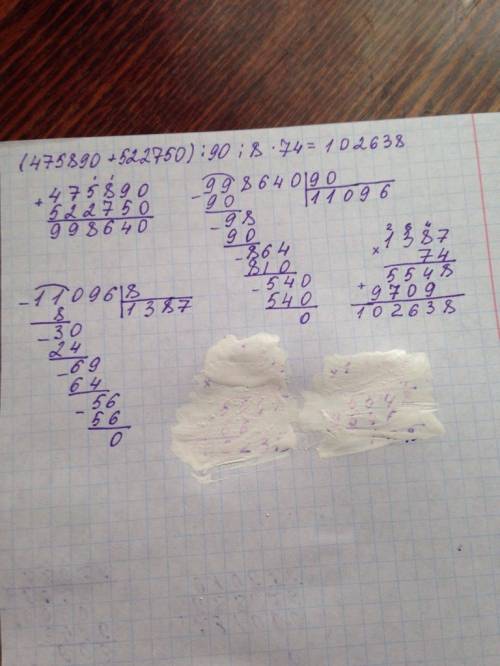 (475890 + 522750) : 90 : 8 · 74 = 102638
+ 475890
522750
998640
- 998640 | 90
90 | 11096
- 98
90
- 864
810
- 540
540
0
1387
× 74
5548
+ 9709
102638
- 11096 | 8
8 | 1387
- 30
24
- 69
64
- 56
56
0